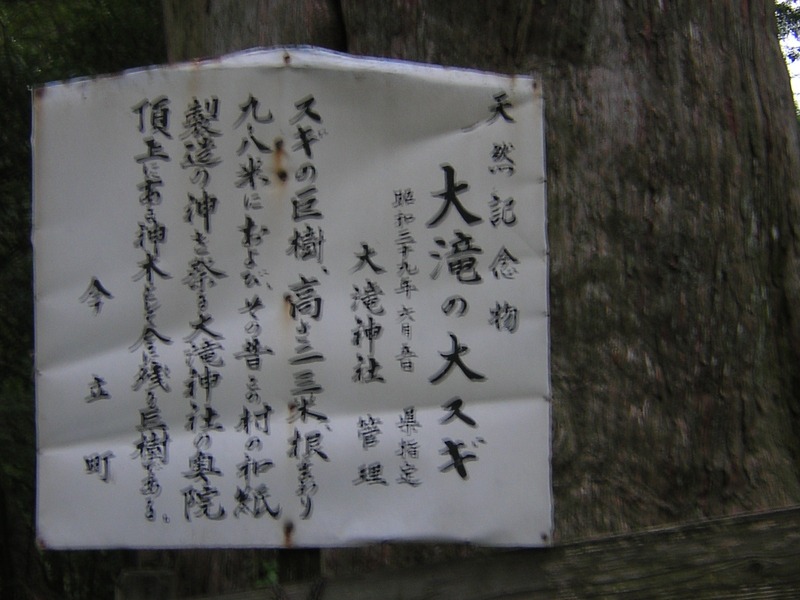 天然記念物
大滝の大スギ
昭和三十九年六月五日 県指定
大滝神社 管理
スギの巨樹、高さ二三米、根まわり
九・八米におよび、その昔この村の和紙
製造の神を祭る大滝神社の奥院
頂上にある神木として今に残る巨樹である。
今立町